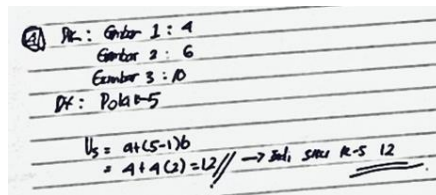 4) Dik : Gambar 1 : 4
Gambar 2 : 6
Gambar 3 : 10
Dit : Pola ke-5
U5 = a+(5-1)b
= 4+4(2) = 12 // → Jadi, suku ke-5 12